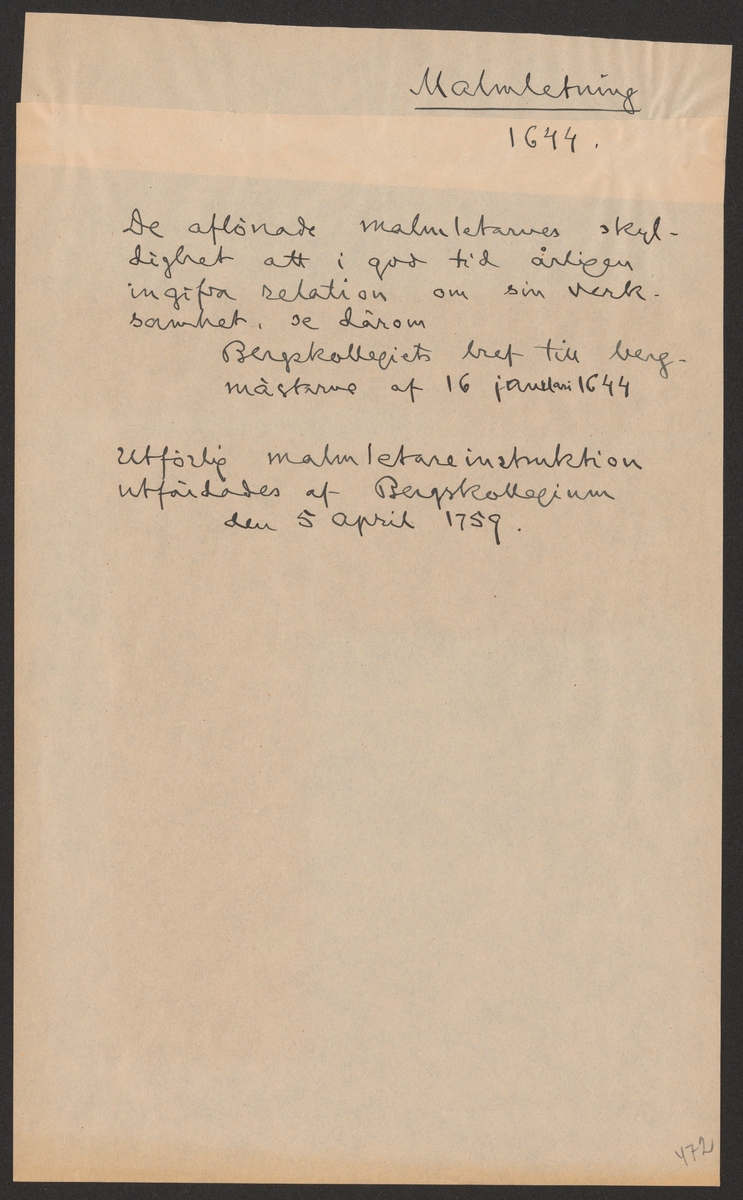 Malmletning
1644.
De aflönade malmletarnes skyl-
dighet att i god tid årligen
ingifva relation om sin verk-
samhet, se därom
Bergskollegiets bref till berg-
mästarne af 16 januari 1644
Utförlig malmletareinstruktion
utfärdades af Bergskollegium
den 5 april 1759.
472